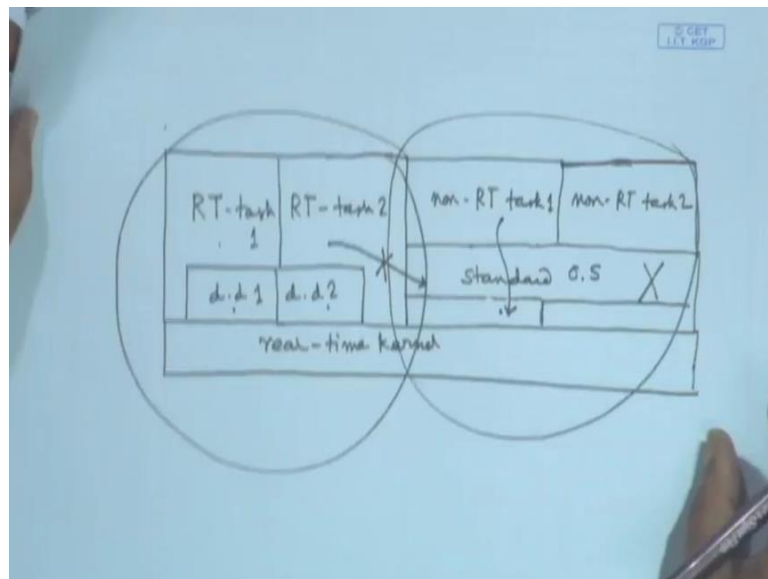 © CET
I.I.T. KGP
RT-task 1
RT-task 2
non-RT task 1
non-RT task 2
standard O.S
X
d.d.1
d.d.2
real-time kernel